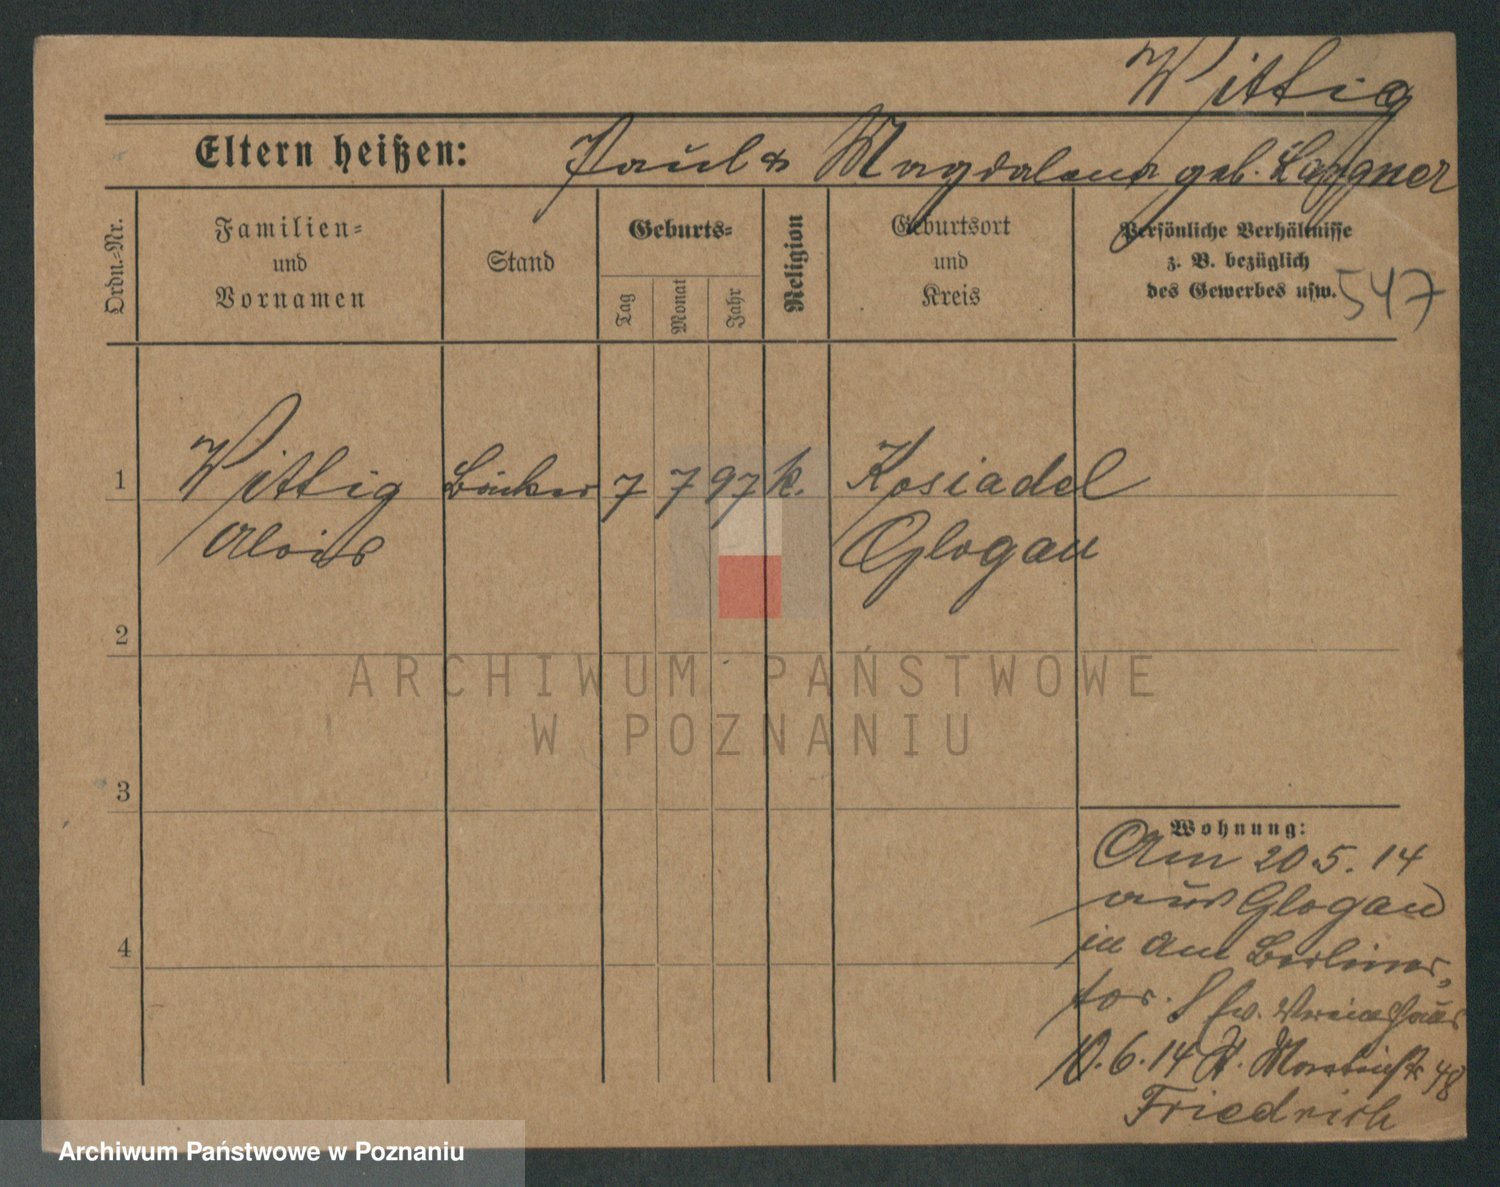 Wittig
Eltern heißen: Paul & Magdalena geb. Langner
Ordn.-Nr.
Familien-
und
Vornamen
Stand
Geburts-
Tag
Monat
Jahr
Religion
Geburtsort
und
Kreis
Persönliche Verhältnisse
z. B. bezüglich
des Gewerbes usw.
547
1 Wittig Bäcker 7 7 97 k. Kosiadel
Alois Glogau
2
3
4
Wohnung:
Am 20.5.14
aus Glogau
in Am Berliner
tor. Vereinshaus
10.6.14 48
Friedrich
ARCHIWUM PAŃSTWOWE
W POZNANIU
Archiwum Państwowe w Poznaniu